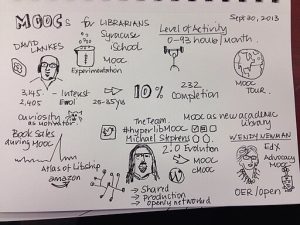 MOOCs for LIBRARIANS
Sept 20, 2013
DAVID LANKES
Syracuse School
MOOC
Experimentation
Level of Activity
0-93 hours/month
MOOC TOUR
3,145 - Interest
2,405 Enrol
26-35 yrs
10%
232
Completion
Curiosity as motivator
Book Sales during MOOC
Atlas of Libship
amazon
The Team
#hyperlibMOOC
Michael Stephens
2.0 Evolution
MOOC
cMOOC
→ Shared
→ Production
→ openly networked
MOOC as new academic Library
WENDY NEWMAN
EdX
Advocacy
MOOC
OER/open